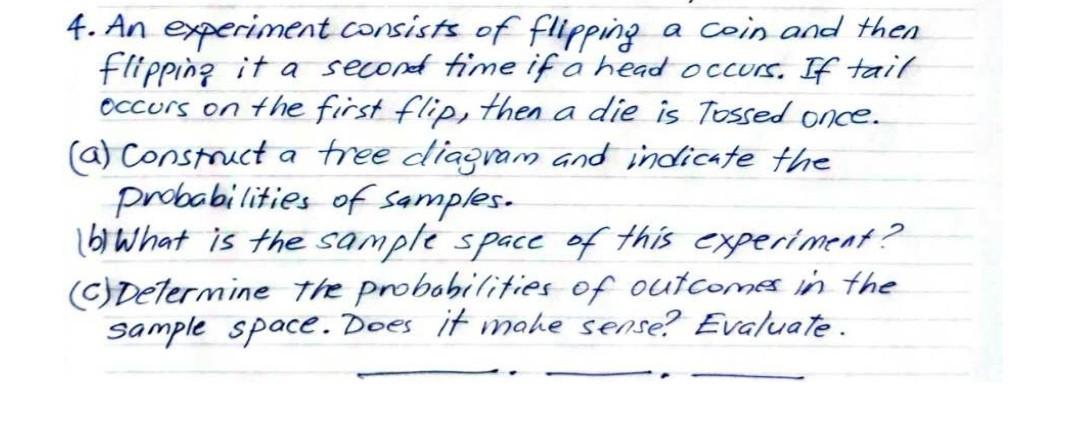 4. An experiment consists of flipping a coin and then
flipping it a second time if a head occurs. If tail
occurs on the first flip, then a die is Tossed once.
(a) Construct a tree diagram and indicate the
probabilities of samples.
(b) What is the sample space of this experiment?
(c) Determine the probabilities of outcomes in the
sample space. Does it make sense? Evaluate.